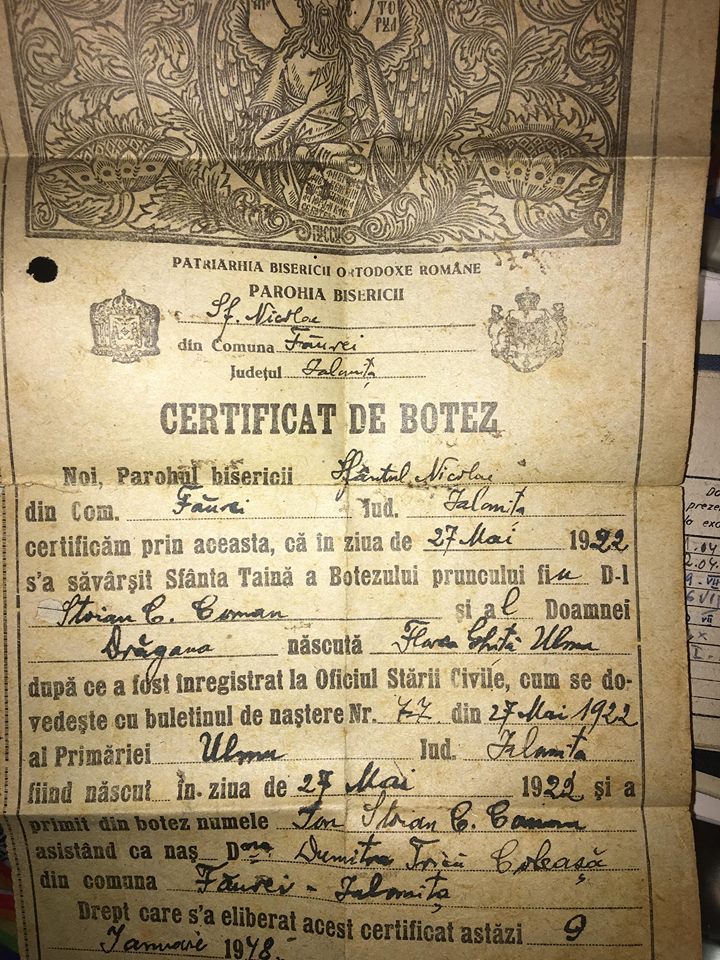 PATRIARHIA BISERICII ORTODOXE ROMÂNE
PAROHIA BISERICII
Sf. Nicolae
din Comuna Făurei
Județul Ialomița
CERTIFICAT DE BOTEZ
Noi, Parohul bisericii Sfântul Nicolae
din Com. Făurei Jud. Ialomița
certificăm prin aceasta, că în ziua de 27 Mai 1922
s'a săvârșit Sfânta Taină a Botezului pruncului fiu D-l
Stoian C. Coman și al Doamnei
Drăgana născută Florea Ghiță Ulmu
după ce a fost înregistrat la Oficiul Stării Civile, cum se do-
vedește cu buletinul de naștere Nr. 77 din 27 Mai 1922
al Primăriei Ulmu Jud. Ialomița
fiind născut în ziua de 27 Mai 1922 și a
primit din botez numele Ion Stoian C. Coman
asistând ca naș D Dumitra
din comuna Făurei - Ialomița
Drept care s'a eliberat acest certificat astăzi 9
Ianuarie 1948.